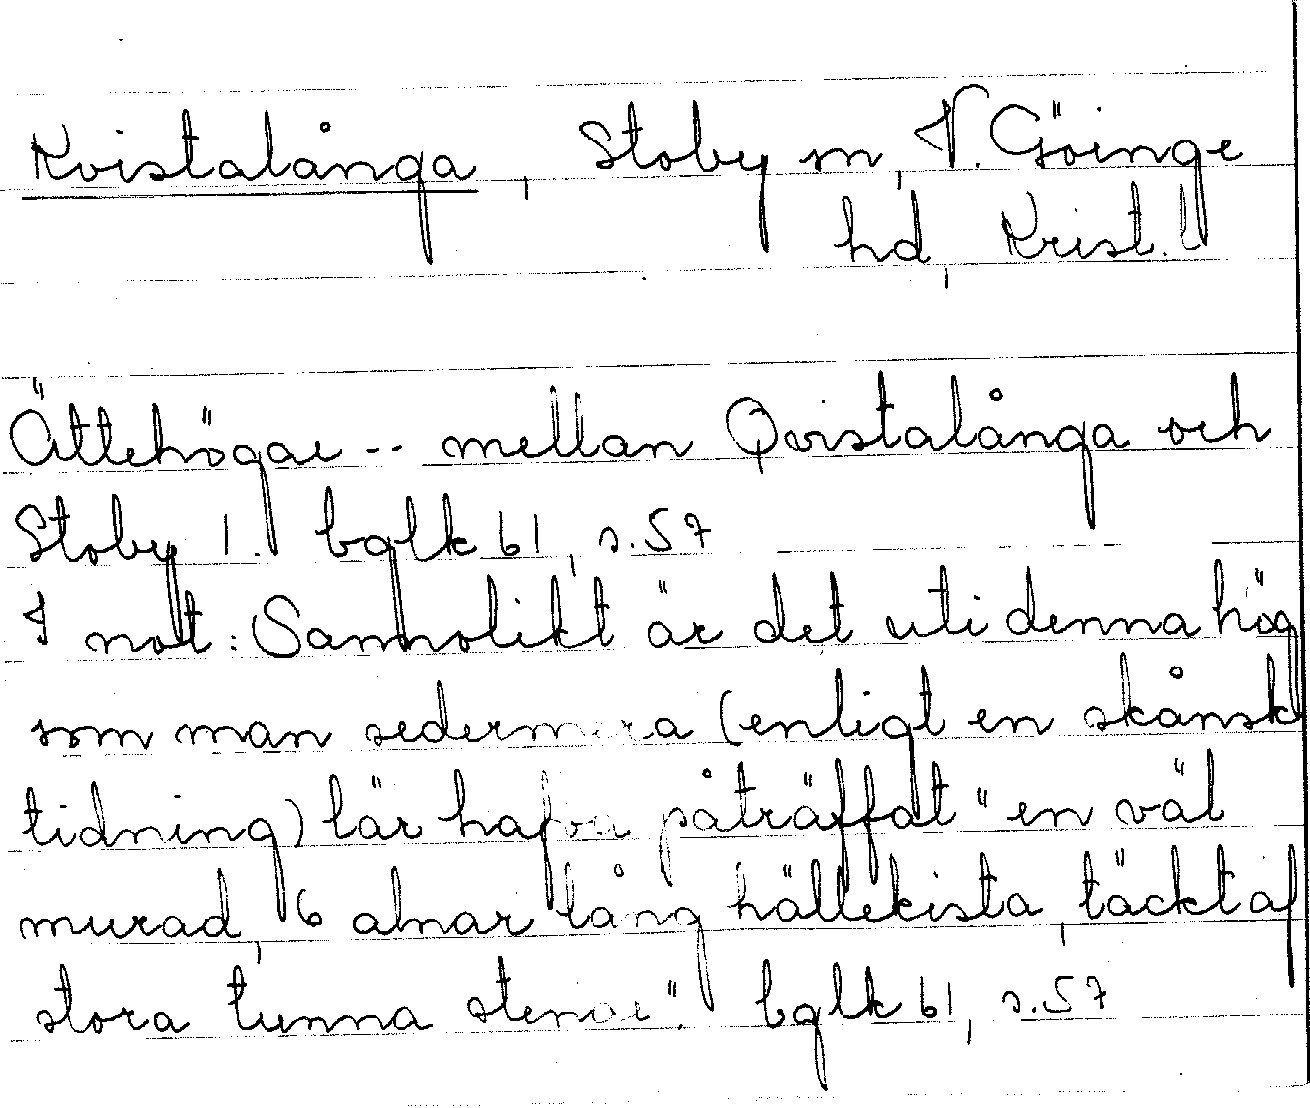 Kvistalånga, Stoby sn, V. Göinge
hd, Krist. l
Ättehögar -- mellan Qvistalånga och
Stoby 1. bglk 61, s. 57
I not: Sannolikt är det uti denna hög
som man sedermera (enligt en skånsk
tidning) lär hafva påträffat "en väl
murad, 6 alnar lång hällekista, täckt af
stora tunna stenar". bglk 61, s. 57